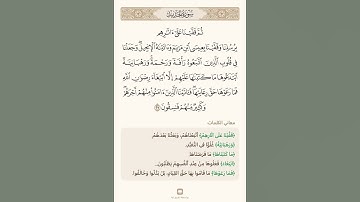 سُورَةُ الحَدِيدِ
ثُمَّ قَفَّيْنَا عَلَىٰٓ ءَاثَٰرِهِم
بِرُسُلِنَا وَقَفَّيْنَا بِعِيسَى ٱبْنِ مَرْيَمَ وَءَاتَيْنَٰهُ ٱلْإِنجِيلَ وَجَعَلْنَا
فِى قُلُوبِ ٱلَّذِينَ ٱتَّبَعُوهُ رَأْفَةً وَرَحْمَةً وَرَهْبَانِيَّةً
ٱبْتَدَعُوهَا مَا كَتَبْنَٰهَا عَلَيْهِمْ إِلَّا ٱبْتِغَآءَ رِضْوَٰنِ ٱللَّهِ
فَمَا رَعَوْهَا حَقَّ رِعَايَتِهَا فَـَٔاتَيْنَا ٱلَّذِينَ ءَامَنُوا۟ مِنْهُمْ أَجْرَهُمْ
وَكَثِيرٌ مِّنْهُمْ فَٰسِقُونَ ٢٧
معاني الكلمات
﴿قَفَّيْنَا عَلَى آثَارِهِم﴾: أَتْبَعْنَاهُمْ، وَبَعَثْنَا بَعْدَهُمْ.
﴿وَرَهْبَانِيَّةً﴾: غُلُوًّا فِي التَّعَبُّدِ.
﴿مَا كَتَبْنَاهَا﴾: مَا فَرَضْنَاهَا.
﴿ابْتِغَاءَ﴾: فَعَلُوهَا مِنْ عِنْدِ أَنْفُسِهِمْ يَطْلُبُونَ.
﴿فَمَا رَعَوْهَا﴾: مَا قَامُوا بِهَا حَقَّ القِيَامِ، بَلْ بَدَّلُوا وَخَالَفُوا.